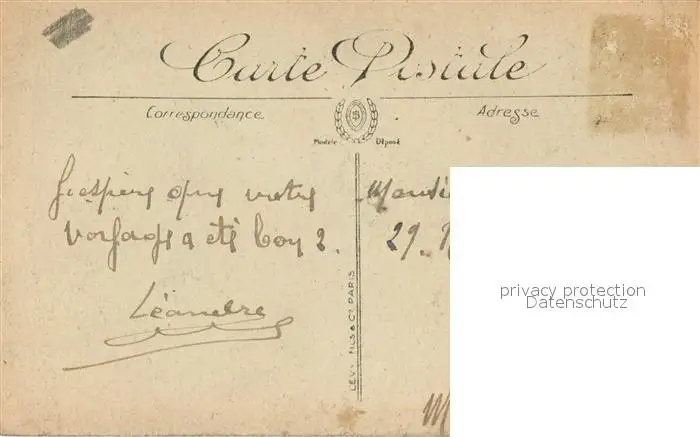 Carte Postale
Correspondance
Adresse
Modèle Déposé
J'espère que votre
voyage a été bon ?.
Léandre
29.
LEVY FILS & Cie PARIS
privacy protection
Datenschutz